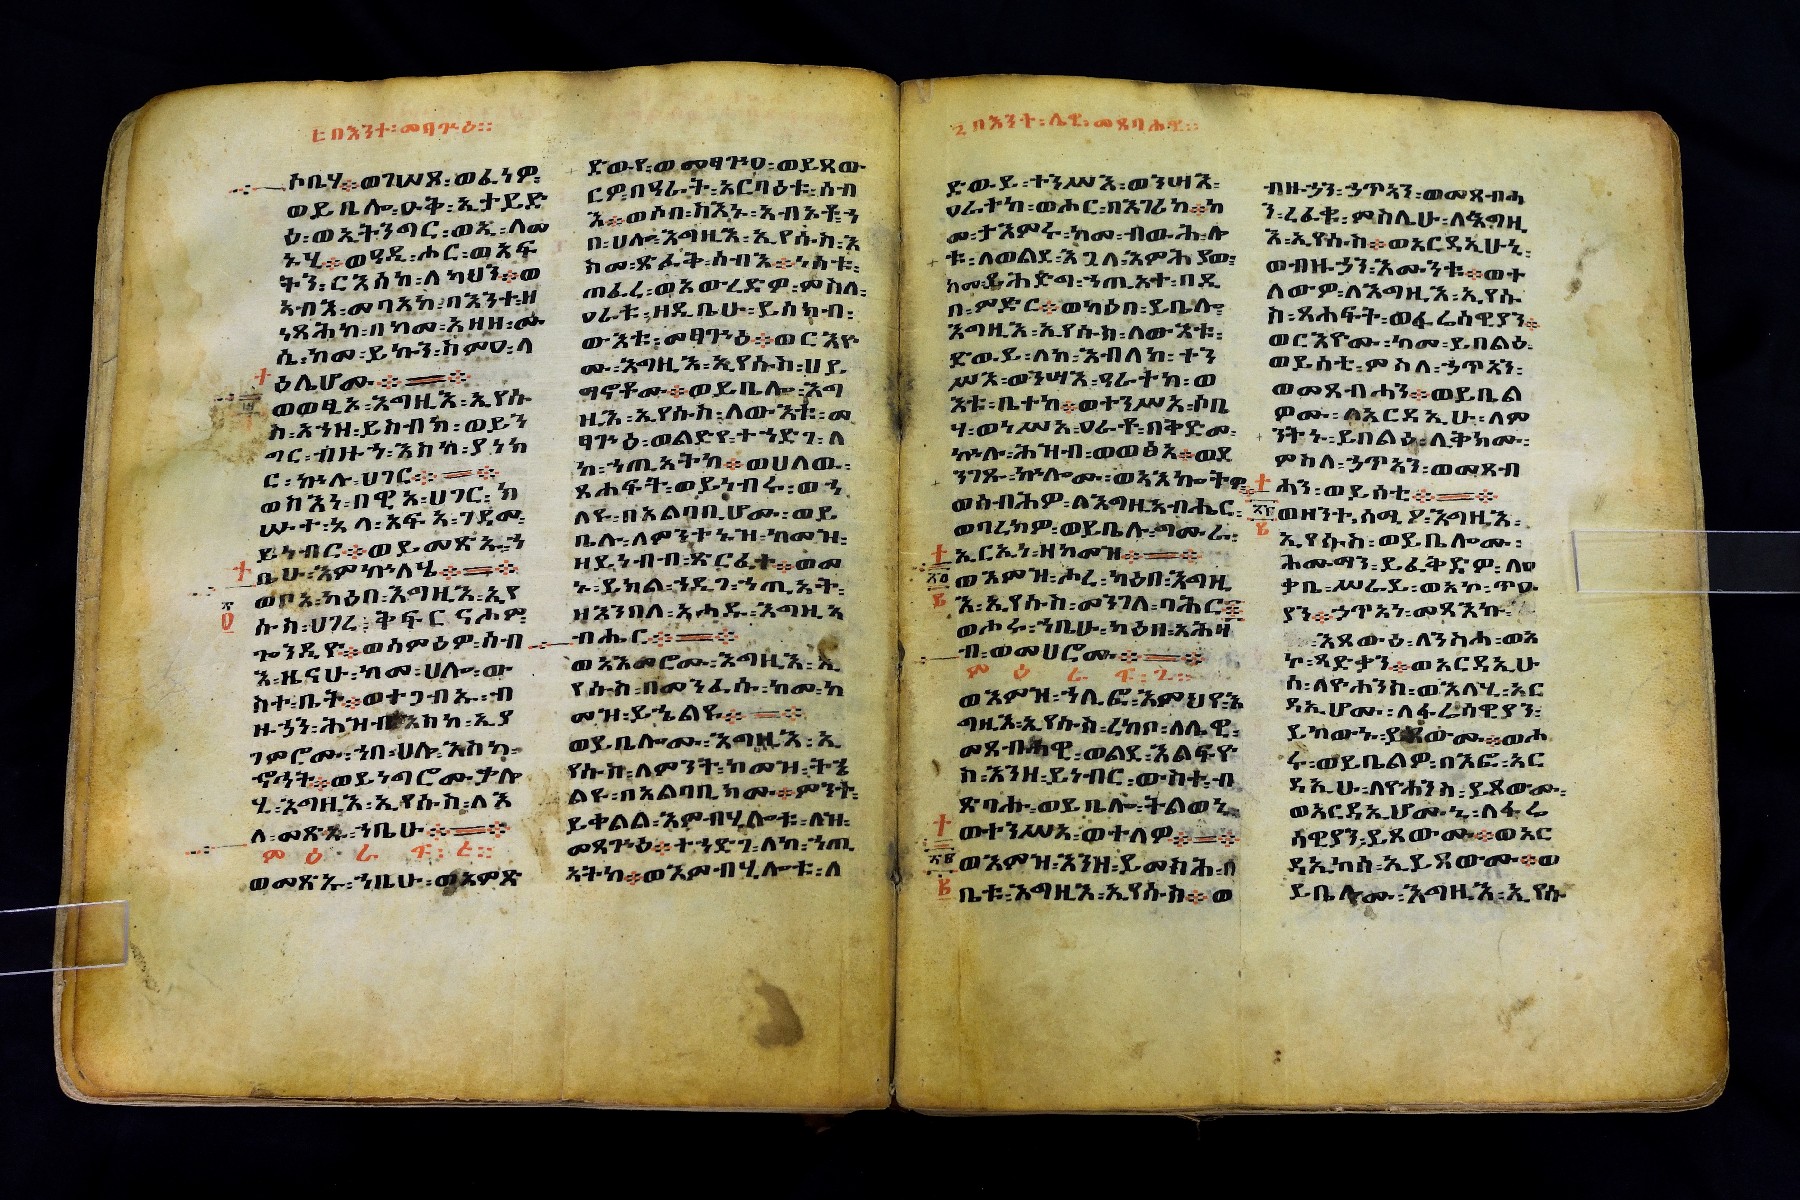 ፩: በእንተ፡ መፃጕዕ።
ኮቢሃ፡ ወገሠጾ፡ ወፈነዎ፡
ወይቤሎ፡ ዑቅ፡ ኢታይድ
ዕ፡ ወኢትንግር፡ ወኢ፡ ለመ
ኑሂ፡ ወዳዲ፡ ሖር፡ ወአፍ
ትን፡ ርእሰከ፡ ለካህን፡ ወ
አብእ፡ መባአከ፡ በእንተ፡ ዘ
ነጻሕከ፡ በከመ፡ አዘዘ፡ ሙ
ሴ፡ ከመ፡ ይኩን፡ ስምዐ፡ ላ
ዕሌሆሙ።
ወወፂኦ፡ እግዚእ፡ ኢየሱ
ስ፡ እንዘ፡ ይሰብክ፡ ወይን
ግር፡ ብዙኃ፡ እስከ፡ ያነክ
ር፡ ኵሉ፡ ሀገር።
ወከእነ፡ በዊአ፡ ሀገር፡ ክ
ሡተ፡ አላ፡ አፍኣ፡ ገዳመ፡
ይነብር፡ ወይመጽኡ፡ ኀ
ቤሁ፡ እምኵለሄ።
ወቦአ፡ ካዕበ፡ እግዚእ፡ ኢየ
ሱስ፡ ሀገረ፡ ቅፍርናሖም፡
ጐንዲዮ፡ ወሰምዕዎ፡ ሰብ
እ፡ ዜናሁ፡ ከመ፡ ሀሎ፡ ው
ስተ፡ ቤት፡ ወተጋብኡ፡ ብ
ዙኃን፡ ሕዝብ፡ እስከ፡ ኢያ
ገምሮሙ፡ ኀበ፡ ሀሉ፡ እስከ፡
ኆኅት፡ ወይነግሮሙ፡ ቃሎ
ሂ፡ እግዚእ፡ ኢየሱስ፡ ለእ
ለ፡ መጽኡ፡ ኀቤሁ።
ምዕራፍ፡ ፭።
ወመጽኡ፡ ኀቤሁ፡ ወአምጽ
ድውየ፡ ወመፃጕዐ፡ ወይጸው
ርዎ፡ በዓራት፡ አርባዕቱ፡ ሰብ
እ፡ ወሶበ፡ ስእኑ፡ አብኦቶ፡ ኀ
በ፡ ሀሎ፡ እግዚእ፡ ኢየሱስ፡ እ
ስመ፡ ጽፈቅ፡ ሰብእ፡ ነሠቱ፡
ጠፈረ፡ ወአውረድዎ፡ ምስለ፡
ዓራቱ፡ ዘዲቤሁ፡ ይሰክብ፡
ውእቱ፡ መፃጕዕ፡ ወርእዮ
ሙ፡ እግዚእ፡ ኢየሱስ፡ ሀይ
ማኖቶሙ፡ ወይቤሎ፡ እግ
ዚእ፡ ኢየሱስ፡ ለውእቱ፡ መ
ፃጕዕ፡ ወልድየ፡ ተኀድገ፡ ለ
ከ፡ ኀጢአትከ፡ ወሀለዉ፡
ጸሐፍት፡ ወይነብሩ፡ ወኀ
ለዩ፡ በአልባቢሆሙ፡ ወይ
ቤሉ፡ ለምንት፡ ኑዝ፡ ከመዝ፡
ዘይነብብ፡ ጽርፈተ፡ ወመ
ኑ፡ ይክል፡ ኀዲገ፡ ኀጢአት፡
ዘእንበለ፡ አሐዱ፡ እግዚአ
ብሔር።
ወአእመሮሙ፡ እግዚእ፡ ኢ
የሱስ፡ በመንፈሱ፡ ከመ፡ ከ
መዝ፡ ይኄልዩ።
ወይቤሎሙ፡ እግዚእ፡ ኢ
የሱስ፡ ለምንት፡ ከመዝ፡ ትኄ
ልዩ፡ በአልባቢክሙ፡ ምንት፡
ይቀልል፡ እምብሂሎቱ፡ ለዝ፡
መጻጕዕ፡ ተኀድገ፡ ለከ፡ ኀጢ
አትከ፡ ወእምብሂሎቱ፡ ለ
፪ በእንተ፡ ሌዊ፡ መጸባሐዊ።
ድውይ፡ ተንሥእ፡ ወንሣእ፡
ዓራተከ፡ ወሖር፡ በእገሪከ፡ ከ
መ፡ ታእምሩ፡ ከመ፡ ብውሕ፡ ሎ
ቱ፡ ለወልደ፡ እጓለ፡ እምሕያው፡
ከመ፡ ይሕድግ፡ ኀጢአተ፡ በዲ
በ፡ ምድር፡ ወካዕበ፡ ይቤሎ፡
እግዚእ፡ ኢየሱስ፡ ለውእቱ፡
ድውይ፡ ለከ፡ እብለከ፡ ተን
ሥእ፡ ወንሣእ፡ ዓራተከ፡ ወ
እቱ፡ ቤተከ፡ ወተንሥአ፡ ሶቤ
ሃ፡ ወነሥአ፡ ዓራቶ፡ በቅድመ፡
ኵሉ፡ ሕዝብ፡ ወወፅአ፡ ወደ
ንገጹ፡ ኵሎሙ፡ ወአእኰትዎ፡
ወሰብሕዎ፡ ለእግዚአብሔር፡
ወባረክዎ፡ ወይቤሉ፡ ግሙራ፡
ኢርኢነ፡ ዘከመዝ።
ወእምዝ፡ ሖረ፡ ካዕበ፡ እግዚ
እ፡ ኢየሱስ፡ መንገለ፡ ባሕር፡
ወሖሩ፡ ኀቤሁ፡ ካዕበ፡ አሕዛ
ብ፡ ወመሀሮሙ።
ምዕራፍ፡ ፮።
ወእምዝ፡ ኀሊፎ፡ እምህየ፡ እ
ግዚእ፡ ኢየሱስ፡ ረከቦ፡ ለሌዊ፡
መጸብሐዊ፡ ወልደ፡ እልፍዮ
ስ፡ እንዘ፡ ይነብር፡ ውስተ፡ ብ
ጽባሑ፡ ወይቤሎ፡ ትልወኒ
ወተንሥአ፡ ወተለዎ።
ወእምዝ፡ እንዘ፡ ይመስሕ፡ በ
ቤቱ፡ እግዚእ፡ ኢየሱስ፡ ወ
ብዙኃን፡ ኃጥኣን፡ ወመጸብሓ
ን፡ ረፈቁ፡ ምስሌሁ፡ ለእግዚ
እ፡ ኢየሱስ፡ ወአርዳኢሁኒ፡
ወብዙኃን፡ እሙንቱ፡ ወተ
ለውዎ፡ ለእግዚእ፡ ኢየሱ
ስ፡ ጸሐፍት፡ ወፈሬሳዊያን፡
ወርእዮሙ፡ ከመ፡ ይበልዕ፡
ወይሰቲ፡ ምስለ፡ ኃጥኣን፡
ወመጸብሓን፡ ወይቤል
ዎሙ፡ ለአርዳኢሁ፡ ለም
ንትኑ፡ ይበልዕ፡ ሊቅክሙ፡
ምስለ፡ ኃጥአን፡ ወመጸብ
ሐን፡ ወይሰቲ።
ወዘንተ፡ ሰሚዖ፡ እግዚእ፡
ኢየሱስ፡ ወይቤሎሙ፡
ሕሙማን፡ ይፈቅድዎ፡ ለዐ
ቃቤ፡ ሥራይ፡ ወአኮ፡ ጥዑ
ያን፡ ኃጥአነ፡ መጻእኩ፡
እጸውዕ፡ ለንስሐ፡ ወአ
ኮ፡ ጻድቃን፡ ወአርዳኢሁ
ሰ፡ ለዮሐንስ፡ ወእለሂ፡ አር
ዳኢሆሙ፡ ለፈሬሳዊያን፡
ይከውኑ፡ ይጸውሙ፡ ወሖ
ሩ፡ ወይቤልዎ፡ በእፎ፡ አር
ዳኢሁ፡ ለዮሐንስ፡ ይጸውሙ፡
ወአርዳኢሆሙኒ፡ ለፈሬ
ሳዊያን፡ ይጸውሙ፡ ወአር
ዳኢከሰ፡ ኢይጸውሙ፡ ወ
ይቤሎሙ፡ እግዚእ፡ ኢየሱ